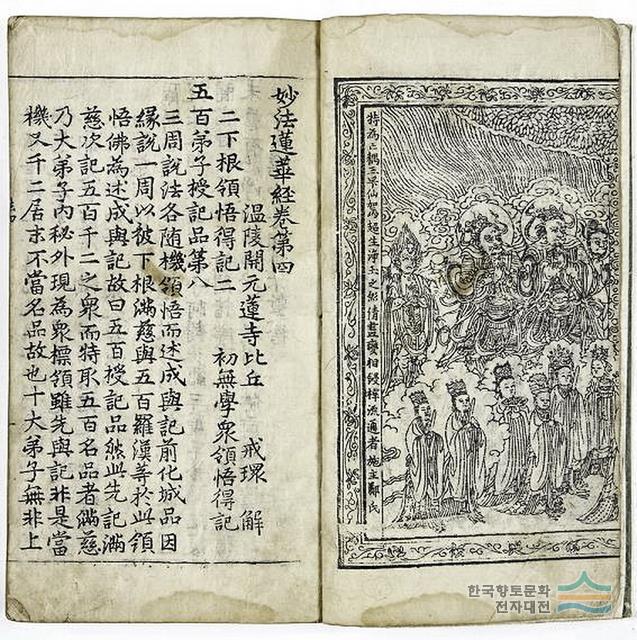 特為亡耦王旱仙駕超生淨土之願倩畫變相鋟梓流通者施主鄭氏
妙法蓮華經卷第四
溫陵開元蓮寺比丘 戒環 解
二下根領悟得記二 初無學衆領悟得記
五百弟子授記品第八
三周說法各随機領悟而述成與記前化城品因
緣說一周以被下根滿慈與五百羅漢等於此領
悟佛為述成與記故曰五百授記品然此先記滿
慈次記五百千二之衆而特取五百名品者滿慈
乃大弟子內秘外現為衆標領雖先與記非是當
機又千二居末不當名品故也十大弟子無非上
한국향토문화
전자대전